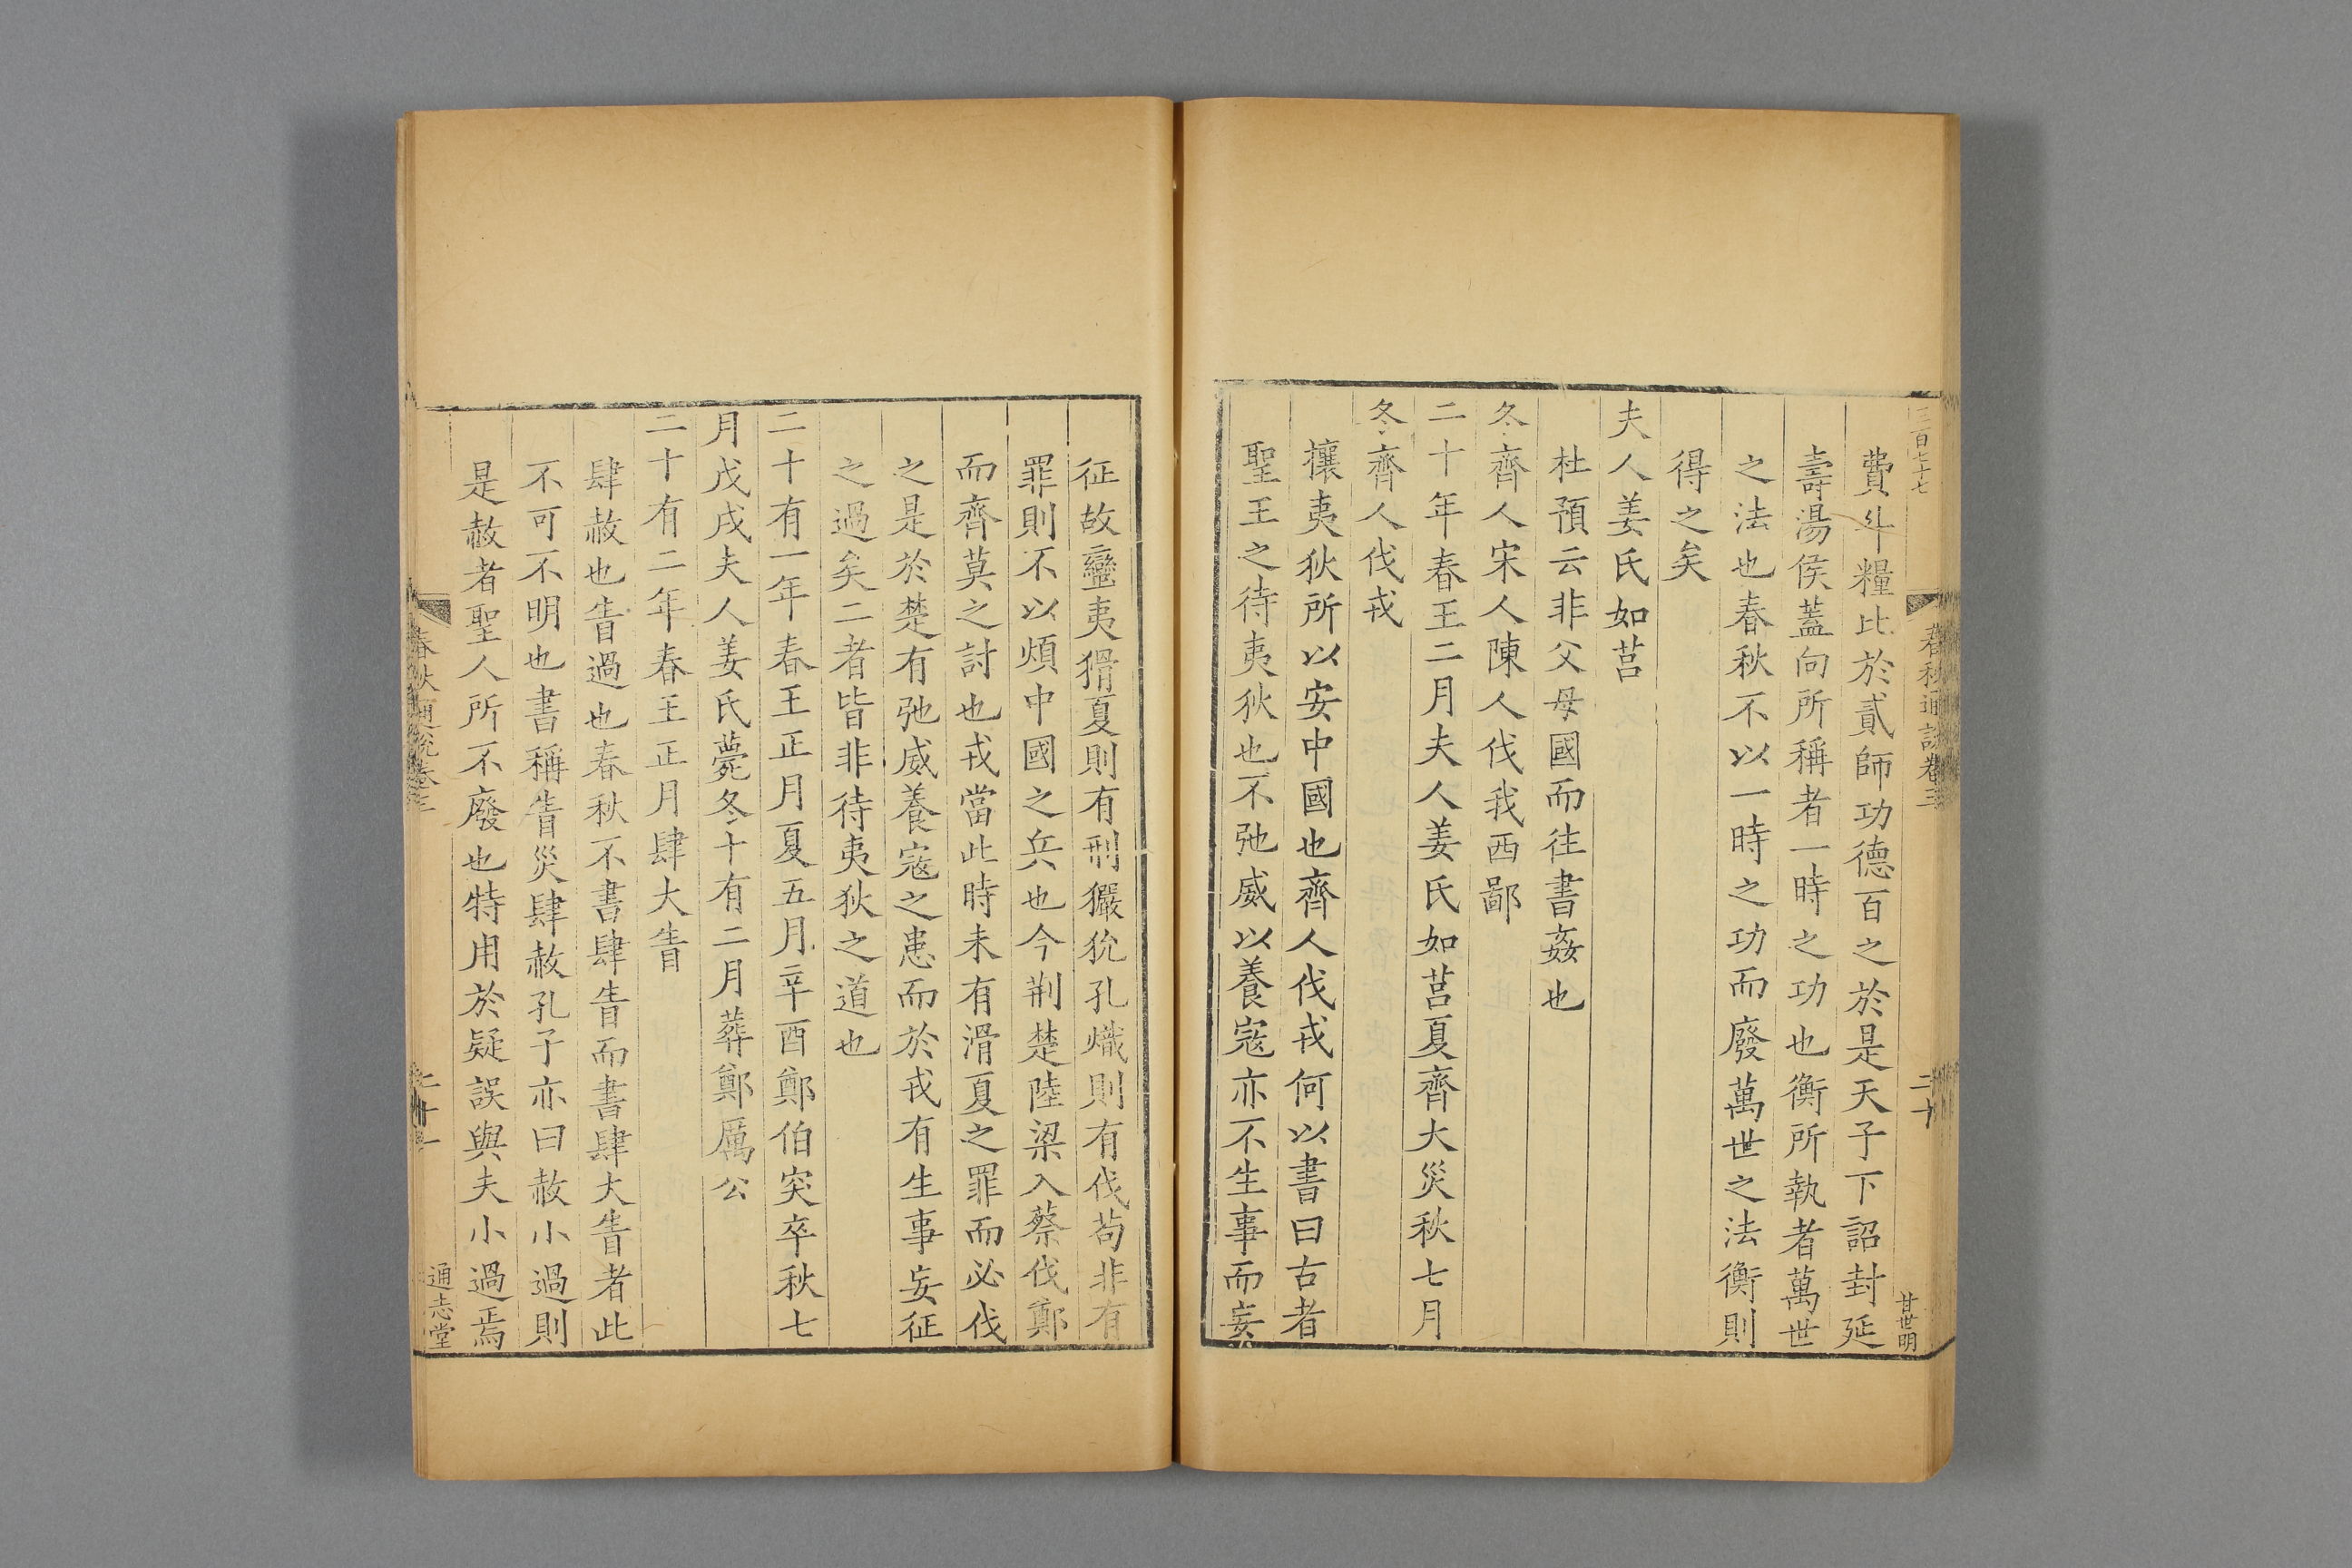 三百七十七
春秋通說卷三
二十
甘世明
費斗糧比於貳師功德百之於是天子下詔封延
壽湯侯蓋向所稱者一時之功也衡所執者萬世
之法也春秋不以一時之功而廢萬世之法衡則
得之矣
夫人姜氏如莒
杜預云非父母國而往書姦也
冬齊人宋人陳人伐我西鄙
二十年春王二月夫人姜氏如莒夏齊大災秋七月
冬齊人伐戎
攘夷狄所以安中國也齊人伐戎何以書曰古者
聖王之待夷狄也不弛威以養寇亦不生事而妄
征故蠻夷猾夏則有刑玁狁孔熾則有伐茍非有
罪則不以煩中國之兵也今荆楚陸梁入蔡伐鄭
而齊莫之討也戎當此時未有滑夏之罪而必伐
之是於楚有弛威養寇之患而於戎有生事妄征
之過矣二者皆非待夷狄之道也
二十有一年春王正月夏五月辛酉鄭伯突卒秋七
月戊戌夫人姜氏薨冬十有二月葬鄭厲公
二十有二年春王正月肆大眚
肆赦也眚過也春秋不書肆眚而書肆大眚者此
不可不明也書稱眚災肆赦孔子亦曰赦小過則
是赦者聖人所不廢也特用於疑誤與夫小過焉
春秋通說卷三
二十一
通志堂